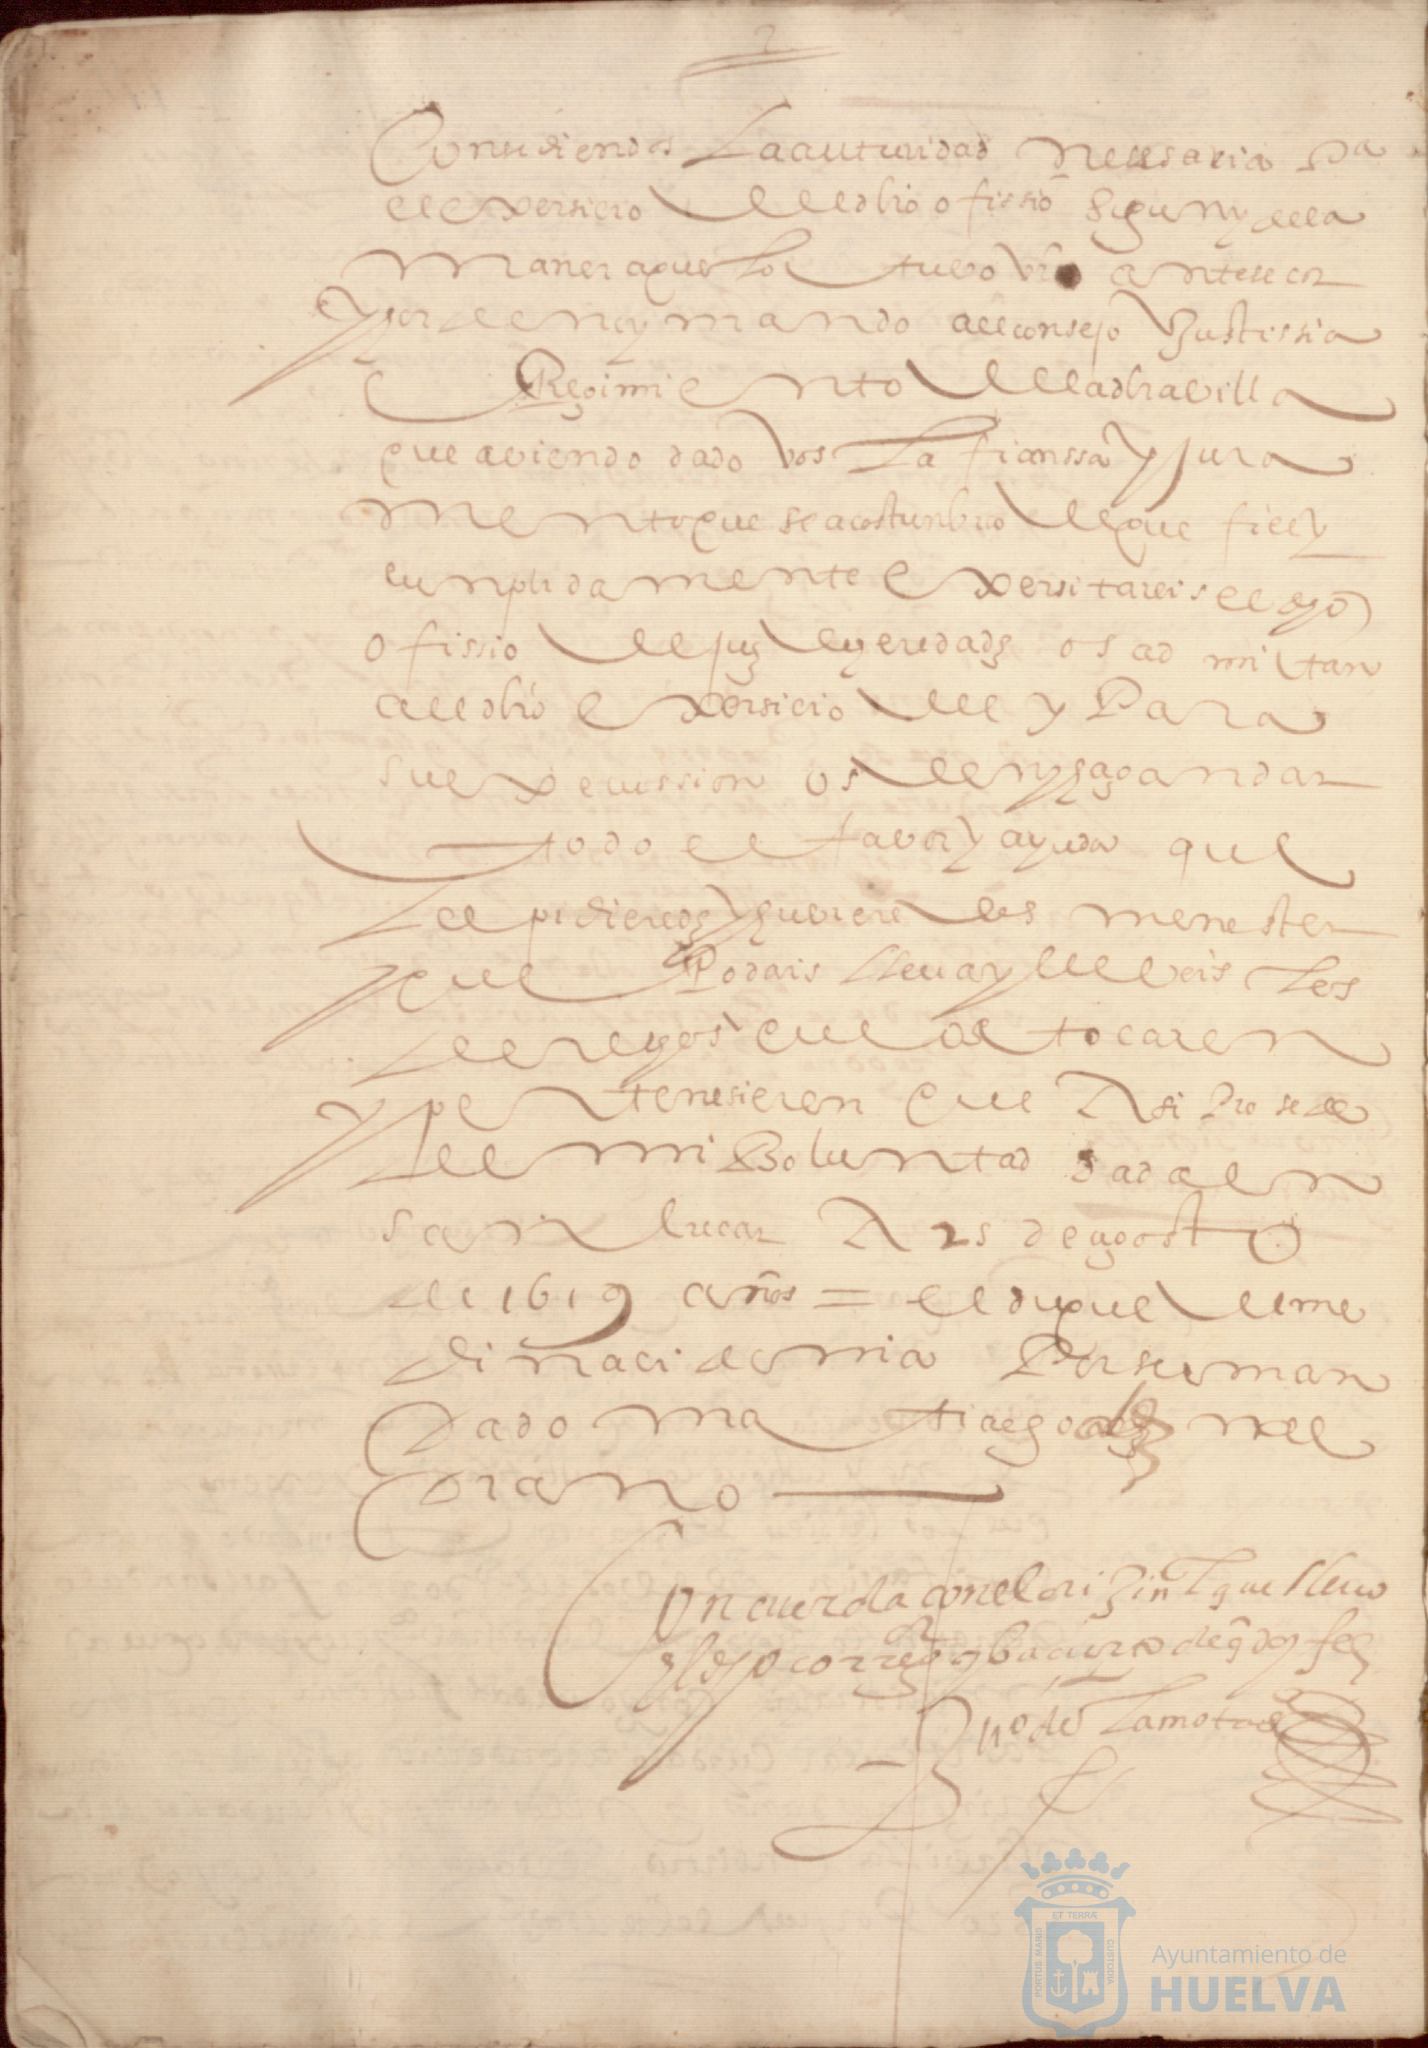 2
Consediendos La auturidad nesesaria pa
el exersicio del dho ofissio Segun y de la
manera que Lo tuvo vro antesesor
y ordeno y mando al consejo Justissia
e Regimiento de la dha villa
que aviendo dado vos La fianssa y jura
mento que se acostunbra de que fiel y
cunplidamente exersitareis el dho
ofissio de juez de eredades os admitan
al dho exersicio del y Para
su execussion os den y hagan dar
todo el favor y ayuda que
le pidieredes y huvieredes menester
y que Podais llevar y lleveis Los
derechos que os tocaren
y pertenesieren que Asi Prosede
de mi Boluntad dada en
san lucar A 25 de agosto
de 1619 años = el duque de me
dina cidonia Por su man
dado ma tias gonzales mel
drano
Concuerda con el orixinal que llevo
el dho corregor y baciero de q doy fee
Juo de Lamota
PORTUS MARIS
ET TERRÆ
CUSTODIA
Ayuntamiento de
HUELVA